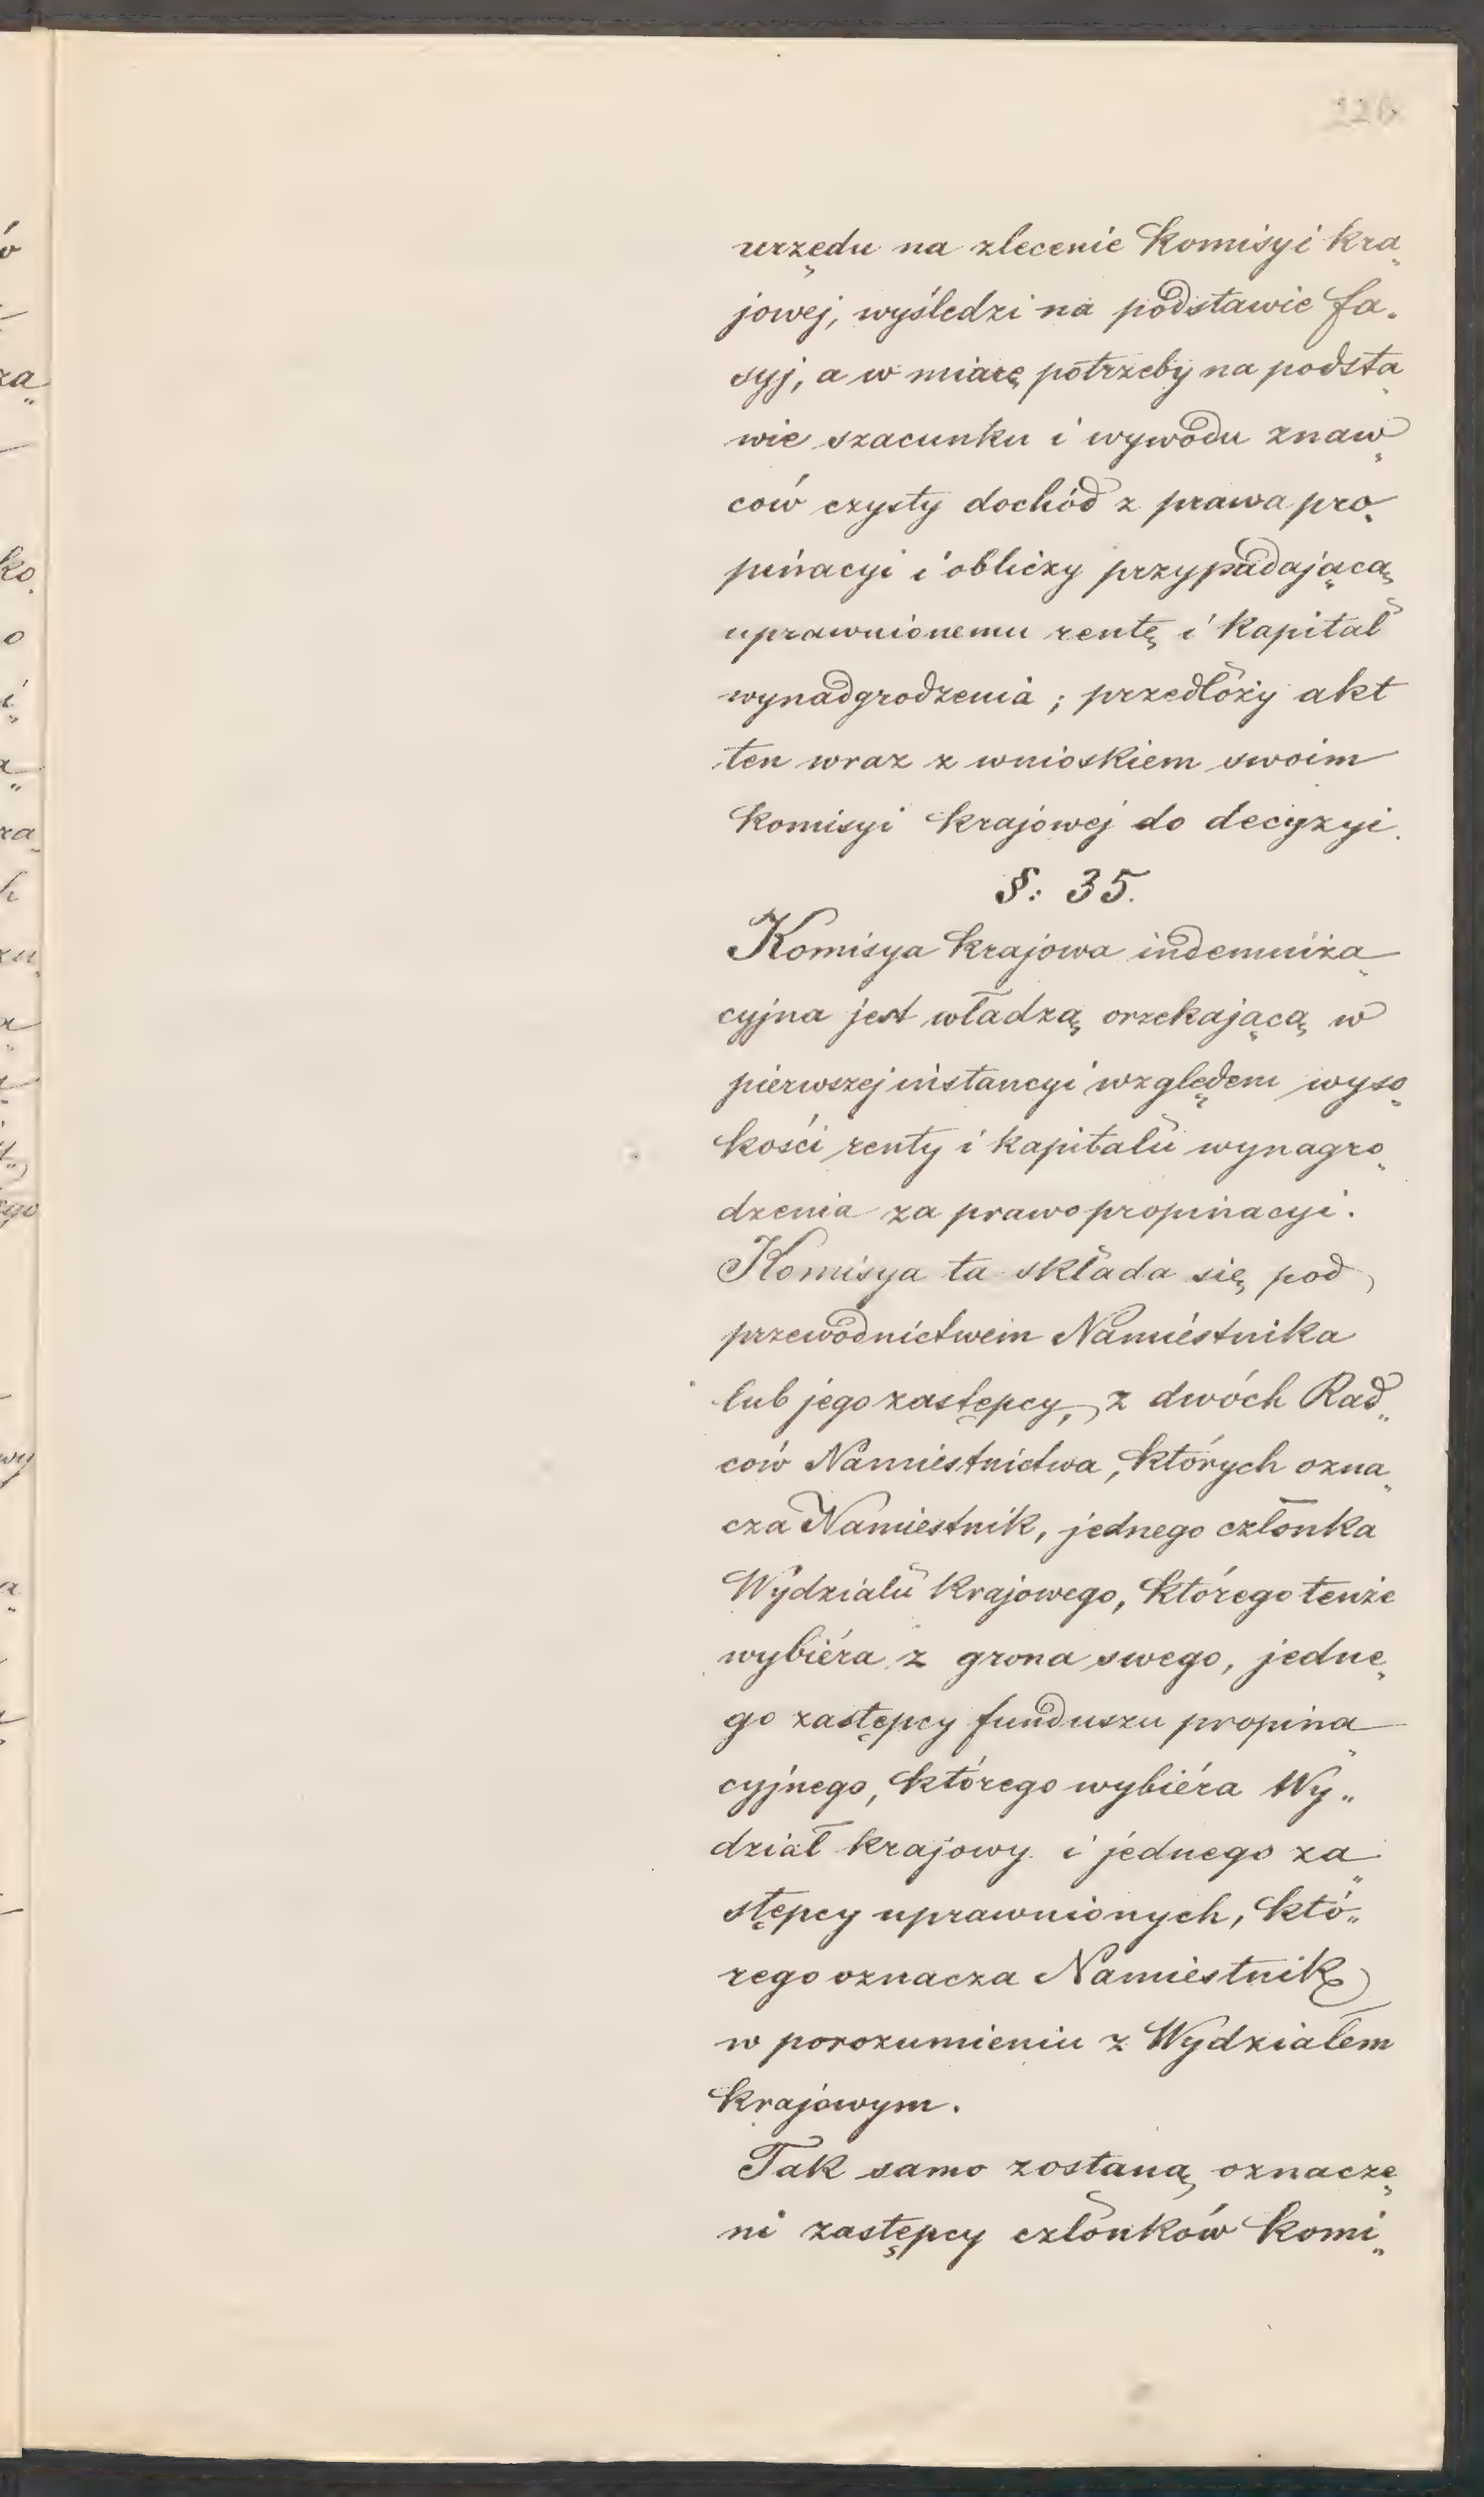 urzędu na zlecenie Komisyi kra„
jowej, wyśledzi na podstawie fa„
syj, a w miarę potrzeby na podsta„
wie szacunku i wywodu znaw„
ców czysty dochód z prawa pro„
pinacyi i obliczy przypadającą
uprawnionemu rentę i kapitał
wynadgrodzenia; przedłoży akt
ten wraz z wnioskiem swoim
Komisyi krajowej do decyzyi.
§: 35.
Komisya krajowa indemniza„
cyjna jest władzą orzekającą w
pierwszej instancyi względem wyso„
kości renty i kapitału wynagro„
dzenia za prawo propinacyi.
Komisya ta składa się pod
przewodnictwem Namiestnika
lub jego zastępcy, z dwóch Rad„
ców Namiestnictwa, których ozna„
cza Namiestnik, jednego członka
Wydziału Krajowego, którego tenże
wybiéra z grona swego, jedne„
go zastępcy funduszu propina„
cyjnego, którego wybiéra Wy„
dział krajowy i jednego za„
stępcy uprawnionych, któ„
rego oznacza Namiestnik
w porozumieniu z Wydziałem
krajowym.
Tak samo zostaną oznacze„
ni zastępcy członków komi„